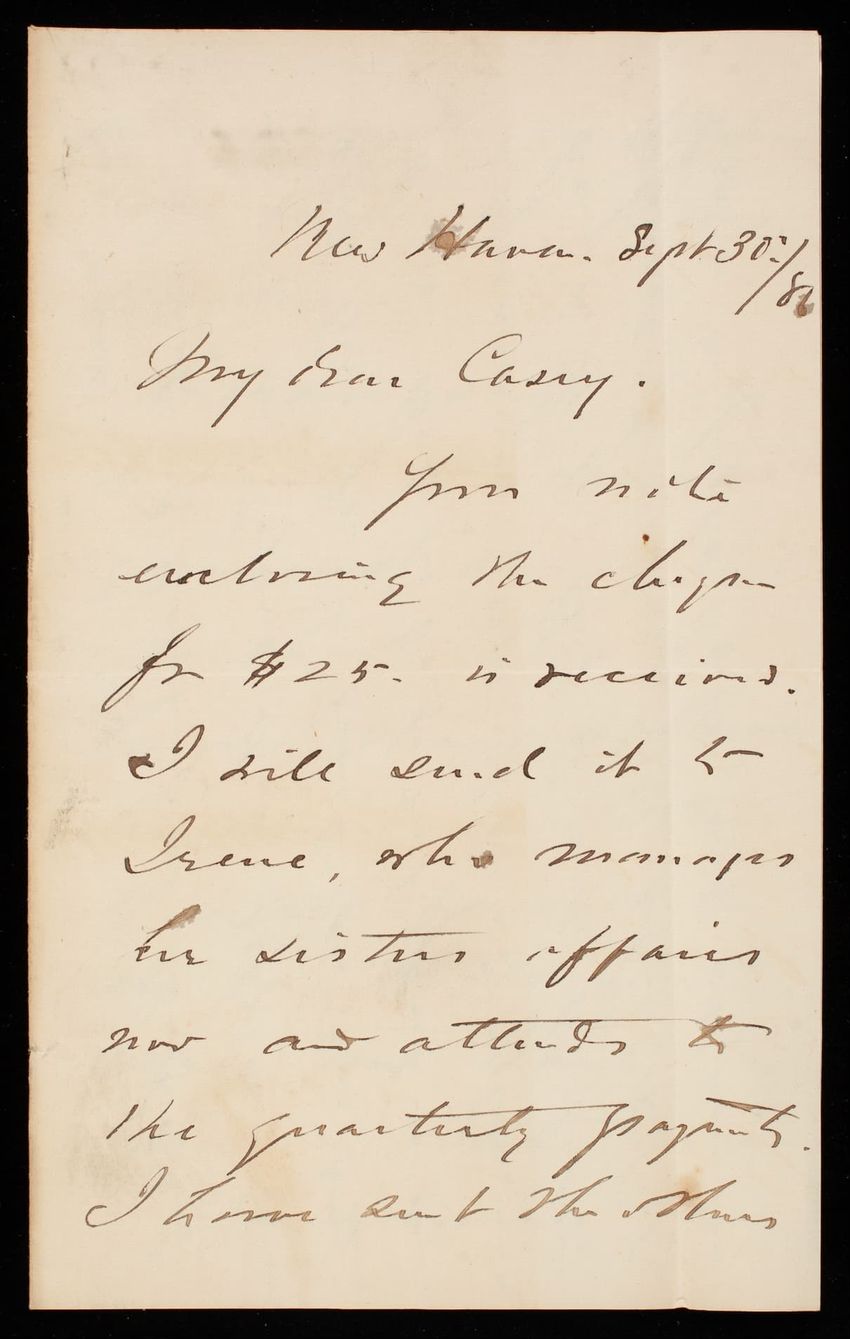 New Haven. Sept 30th/86
My dear Casey.
Your note
enclosing the cheque
for $25. is received.
I will send it to
Irene, who manages
her sisters affairs
now and attends to
the quarterly payments.
I have sent the others